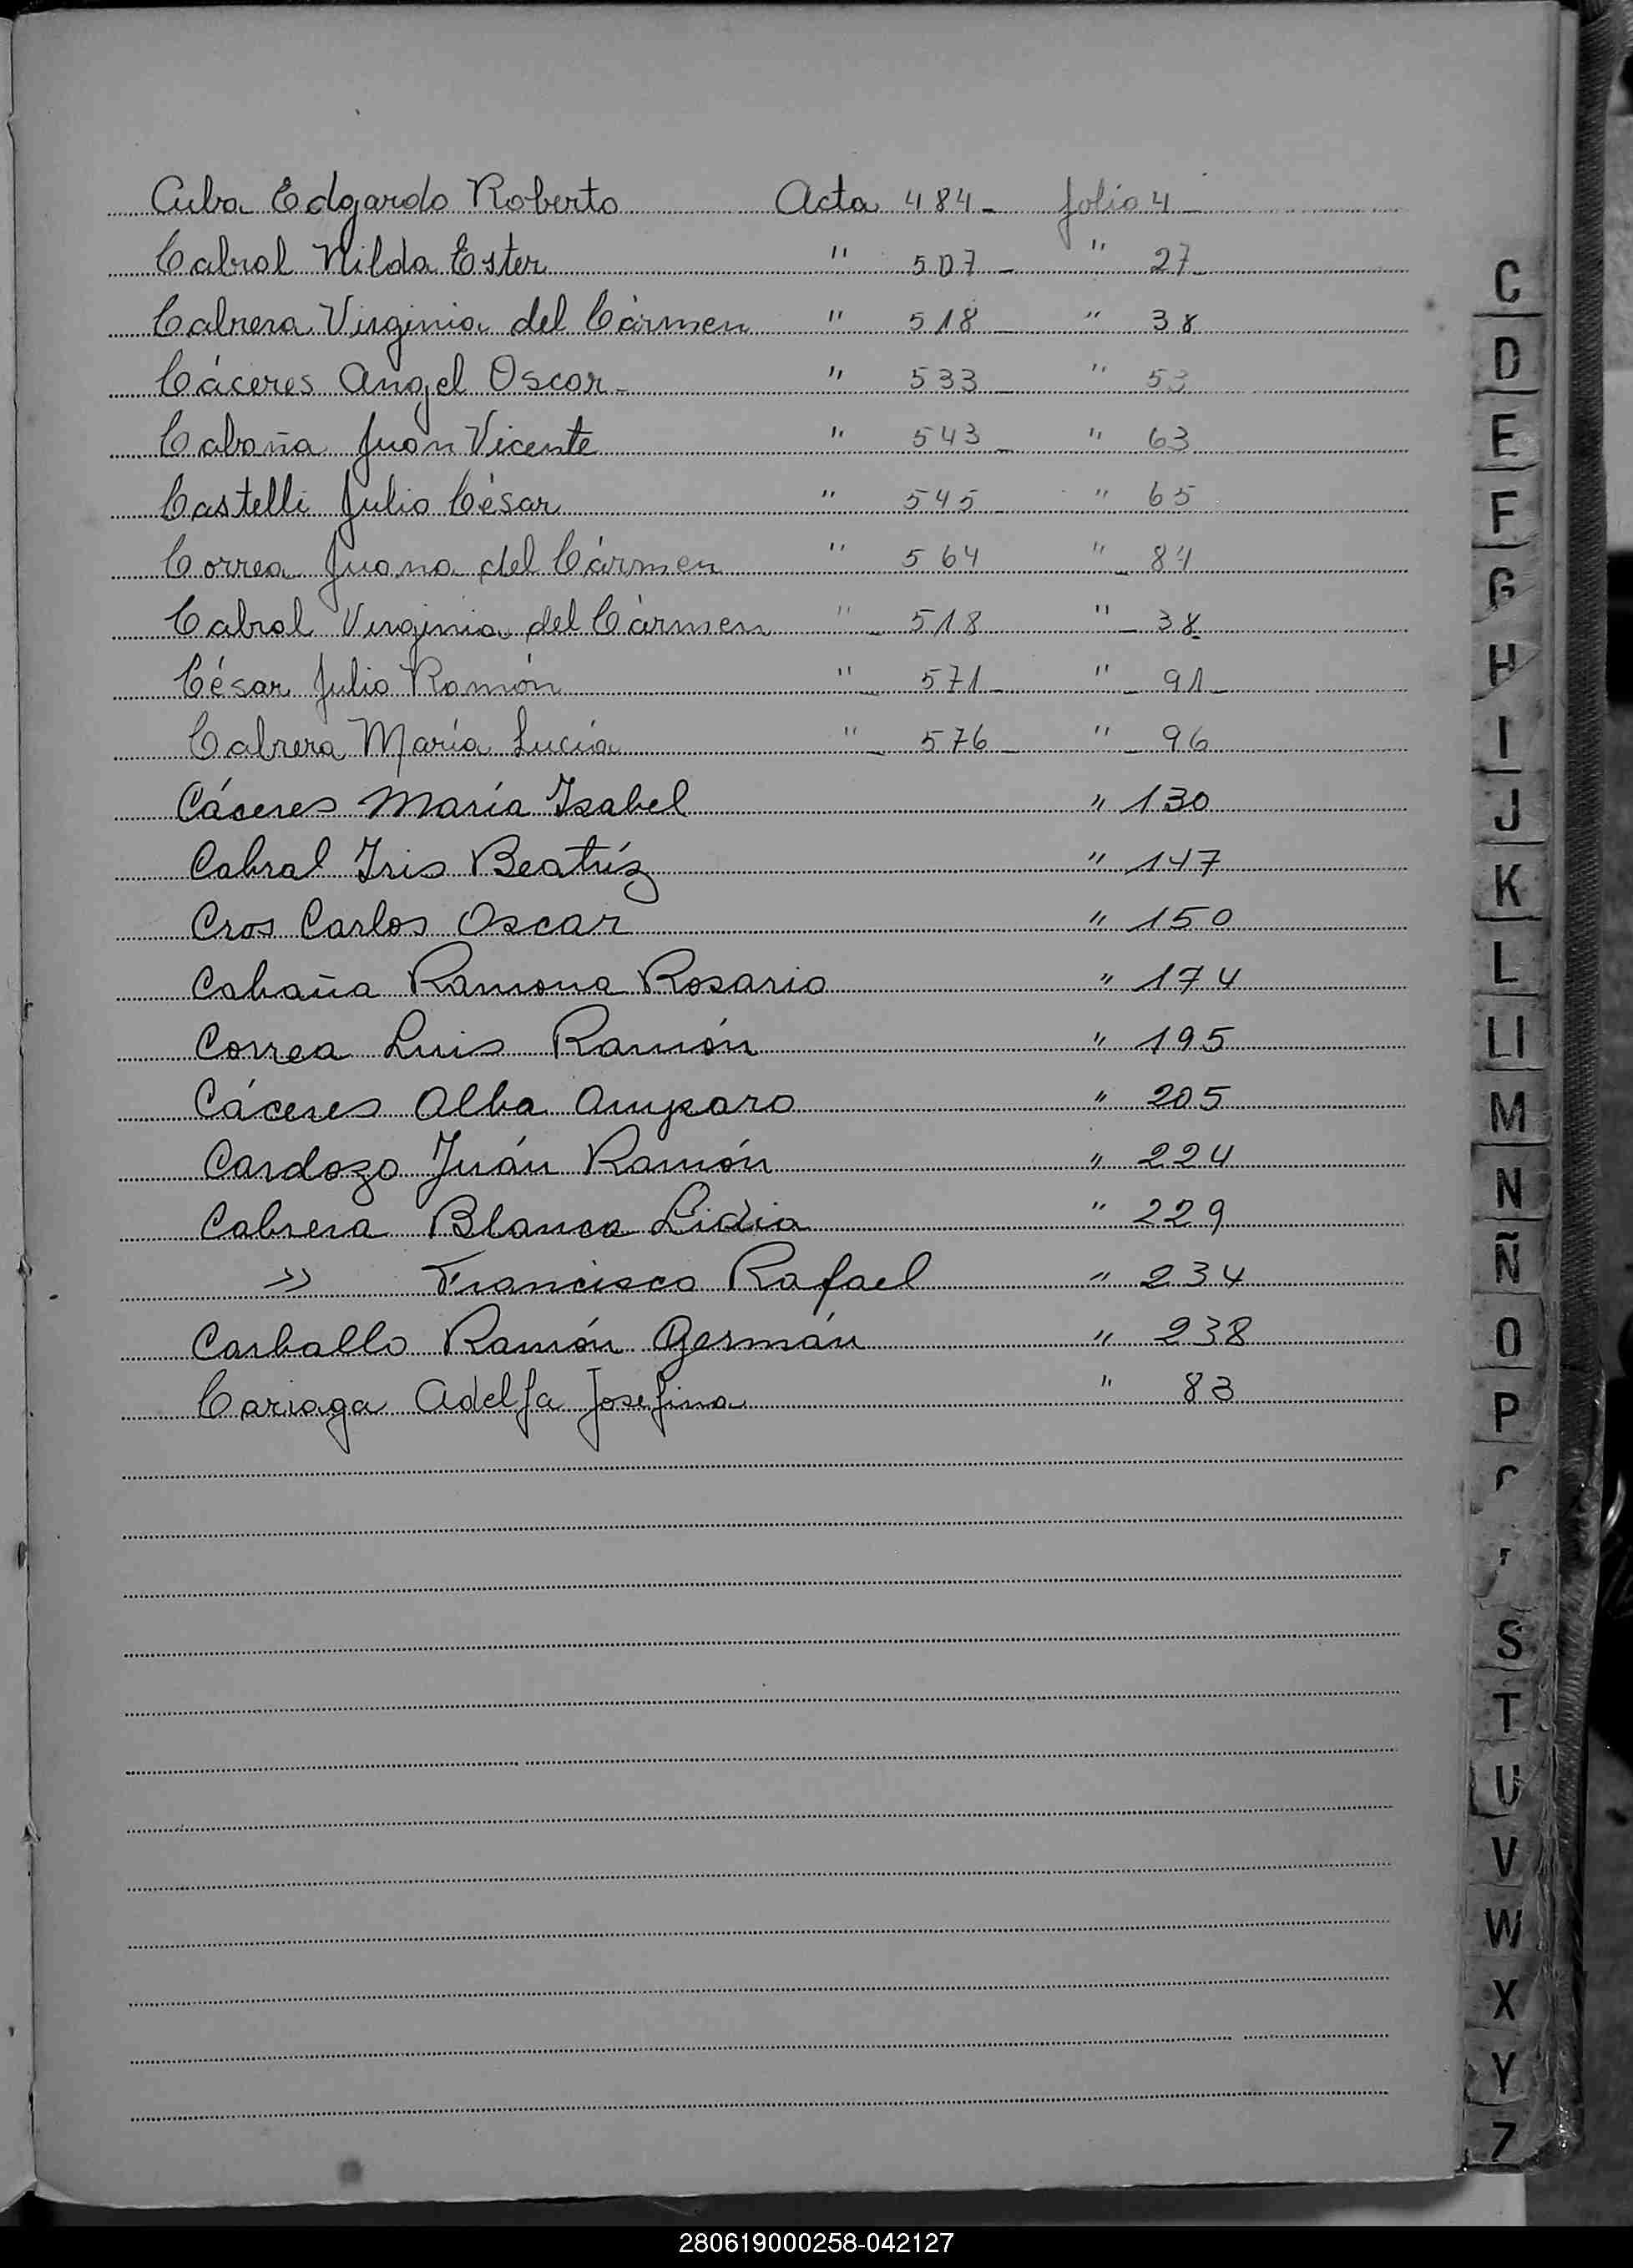 Cuba Edgardo Roberto Acta 484 - folio 4 -
Cabral Nilda Ester " 507 - " 27 -
Cabrera Virginia del Cármen " 518 - " 38
Cáceres Angel Oscar - " 533 - " 53
Cabaña Juan Vicente " 543 - " 63
Castelli Julio César " 545 - " 65
Correa Juana del Cármen " 564 " - 84
Cabral Virginia del Cármen " - 518 " - 38
César Julio Ramón " - 571 - " - 91 -
Cabrera María Lucía " - 576 - " - 96
Cáceres María Isabel " 130
Cabral Iris Beatríz " 147
Cros Carlos Oscar " 150
Cabaña Ramona Rosario " 174
Correa Luis Ramón " 195
Cáceres Alba Amparo " 205
Cardozo Juán Ramón " 224
Cabrera Blanca Lidia " 229
" Francisco Rafael " 234
Carballo Ramón Germán " 238
Cariaga Adelfa Josefina " 83
C
D
E
F
G
H
I
J
K
L
Ll
M
N
Ñ
O
P
S
T
U
V
W
X
Y
Z
280619000258-042127